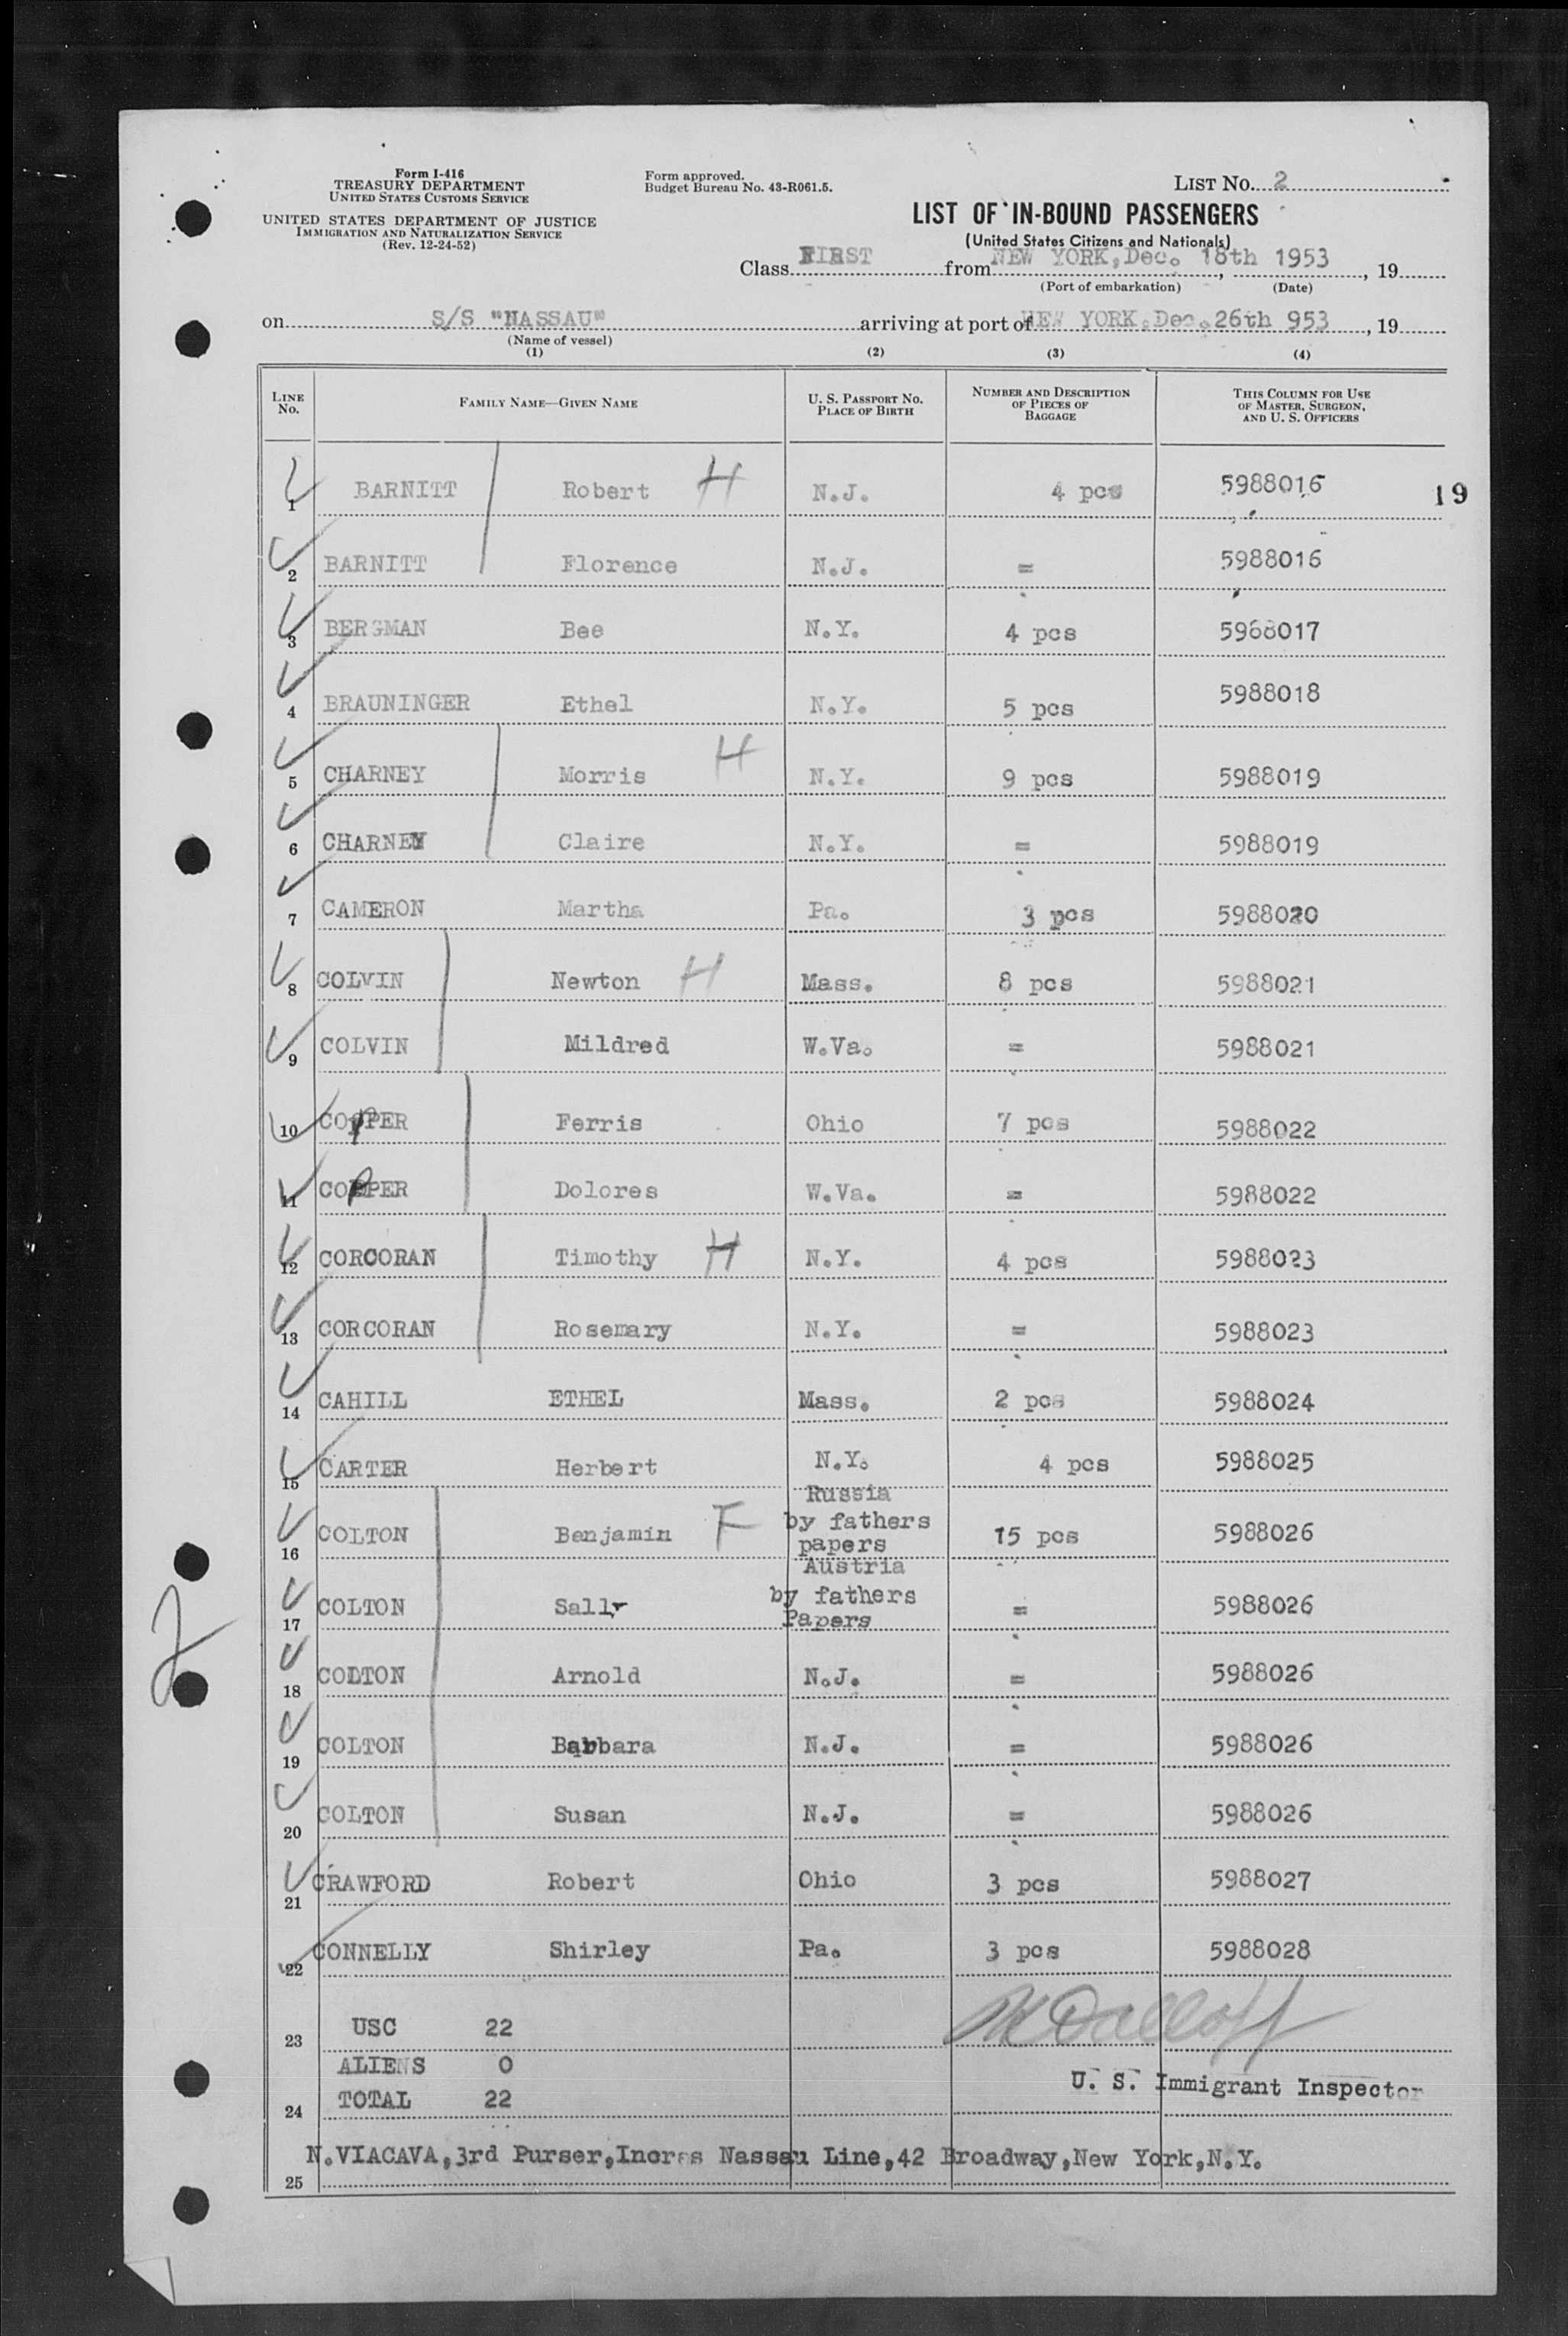 Form I-416
TREASURY DEPARTMENT
UNITED STATES CUSTOMS SERVICE
UNITED STATES DEPARTMENT OF JUSTICE
IMMIGRATION AND NATURALIZATION SERVICE
(Rev. 12-24-52)
Form approved.
Budget Bureau No. 43-R061.5.
LIST NO. 2
LIST OF IN-BOUND PASSENGERS
(United States Citizens and Nationals)
Class FIRST from NEW YORK, Dec. 18th 1953, 19
(Port of embarkation) (Date)
on S/S "NASSAU" arriving at port of NEW YORK, Dec. 26th 953, 19
(Name of vessel)
(1) (2) (3) (4)
LINE NO. FAMILY NAME—GIVEN NAME U. S. PASSPORT NO. PLACE OF BIRTH NUMBER AND DESCRIPTION OF PIECES OF BAGGAGE THIS COLUMN FOR USE OF MASTER, SURGEON, AND U. S. OFFICERS
1 BARNITT Robert H N.J. 4 pcs 5988016 19
2 BARNITT Florence N.J. = 5988016
3 BERGMAN Bee N.Y. 4 pcs 5988017
4 BRAUNINGER Ethel N.Y. 5 pcs 5988018
5 CHARNEY Morris H N.Y. 9 pcs 5988019
6 CHARNEY Claire N.Y. = 5988019
7 CAMERON Martha Pa. 3 pcs 5988020
8 COLVIN Newton H Mass. 8 pcs 5988021
9 COLVIN Mildred W.Va. = 5988021
10 COPPER Ferris Ohio 7 pcs 5988022
11 COPPER Dolores W.Va. = 5988022
12 CORCORAN Timothy H N.Y. 4 pcs 5988023
13 CORCORAN Rosemary N.Y. = 5988023
14 CAHILL ETHEL Mass. 2 pcs 5988024
15 CARTER Herbert N.Y. 4 pcs 5988025
Russia
by fathers
16 COLTON Benjamin F papers 15 pcs 5988026
Austria
by fathers
17 COLTON Sally Papers = 5988026
2
18 COLTON Arnold N.J. = 5988026
19 COLTON Barbara N.J. = 5988026
20 COLTON Susan N.J. = 5988026
21 CRAWFORD Robert Ohio 3 pcs 5988027
22 CONNELLY Shirley Pa. 3 pcs 5988028
23 USC 22
ALIENS 0
U. S. Immigrant Inspector
24 TOTAL 22
N.VIACAVA,3rd Purser,Incres Nassau Line,42 Broadway,New York,N.Y.
25